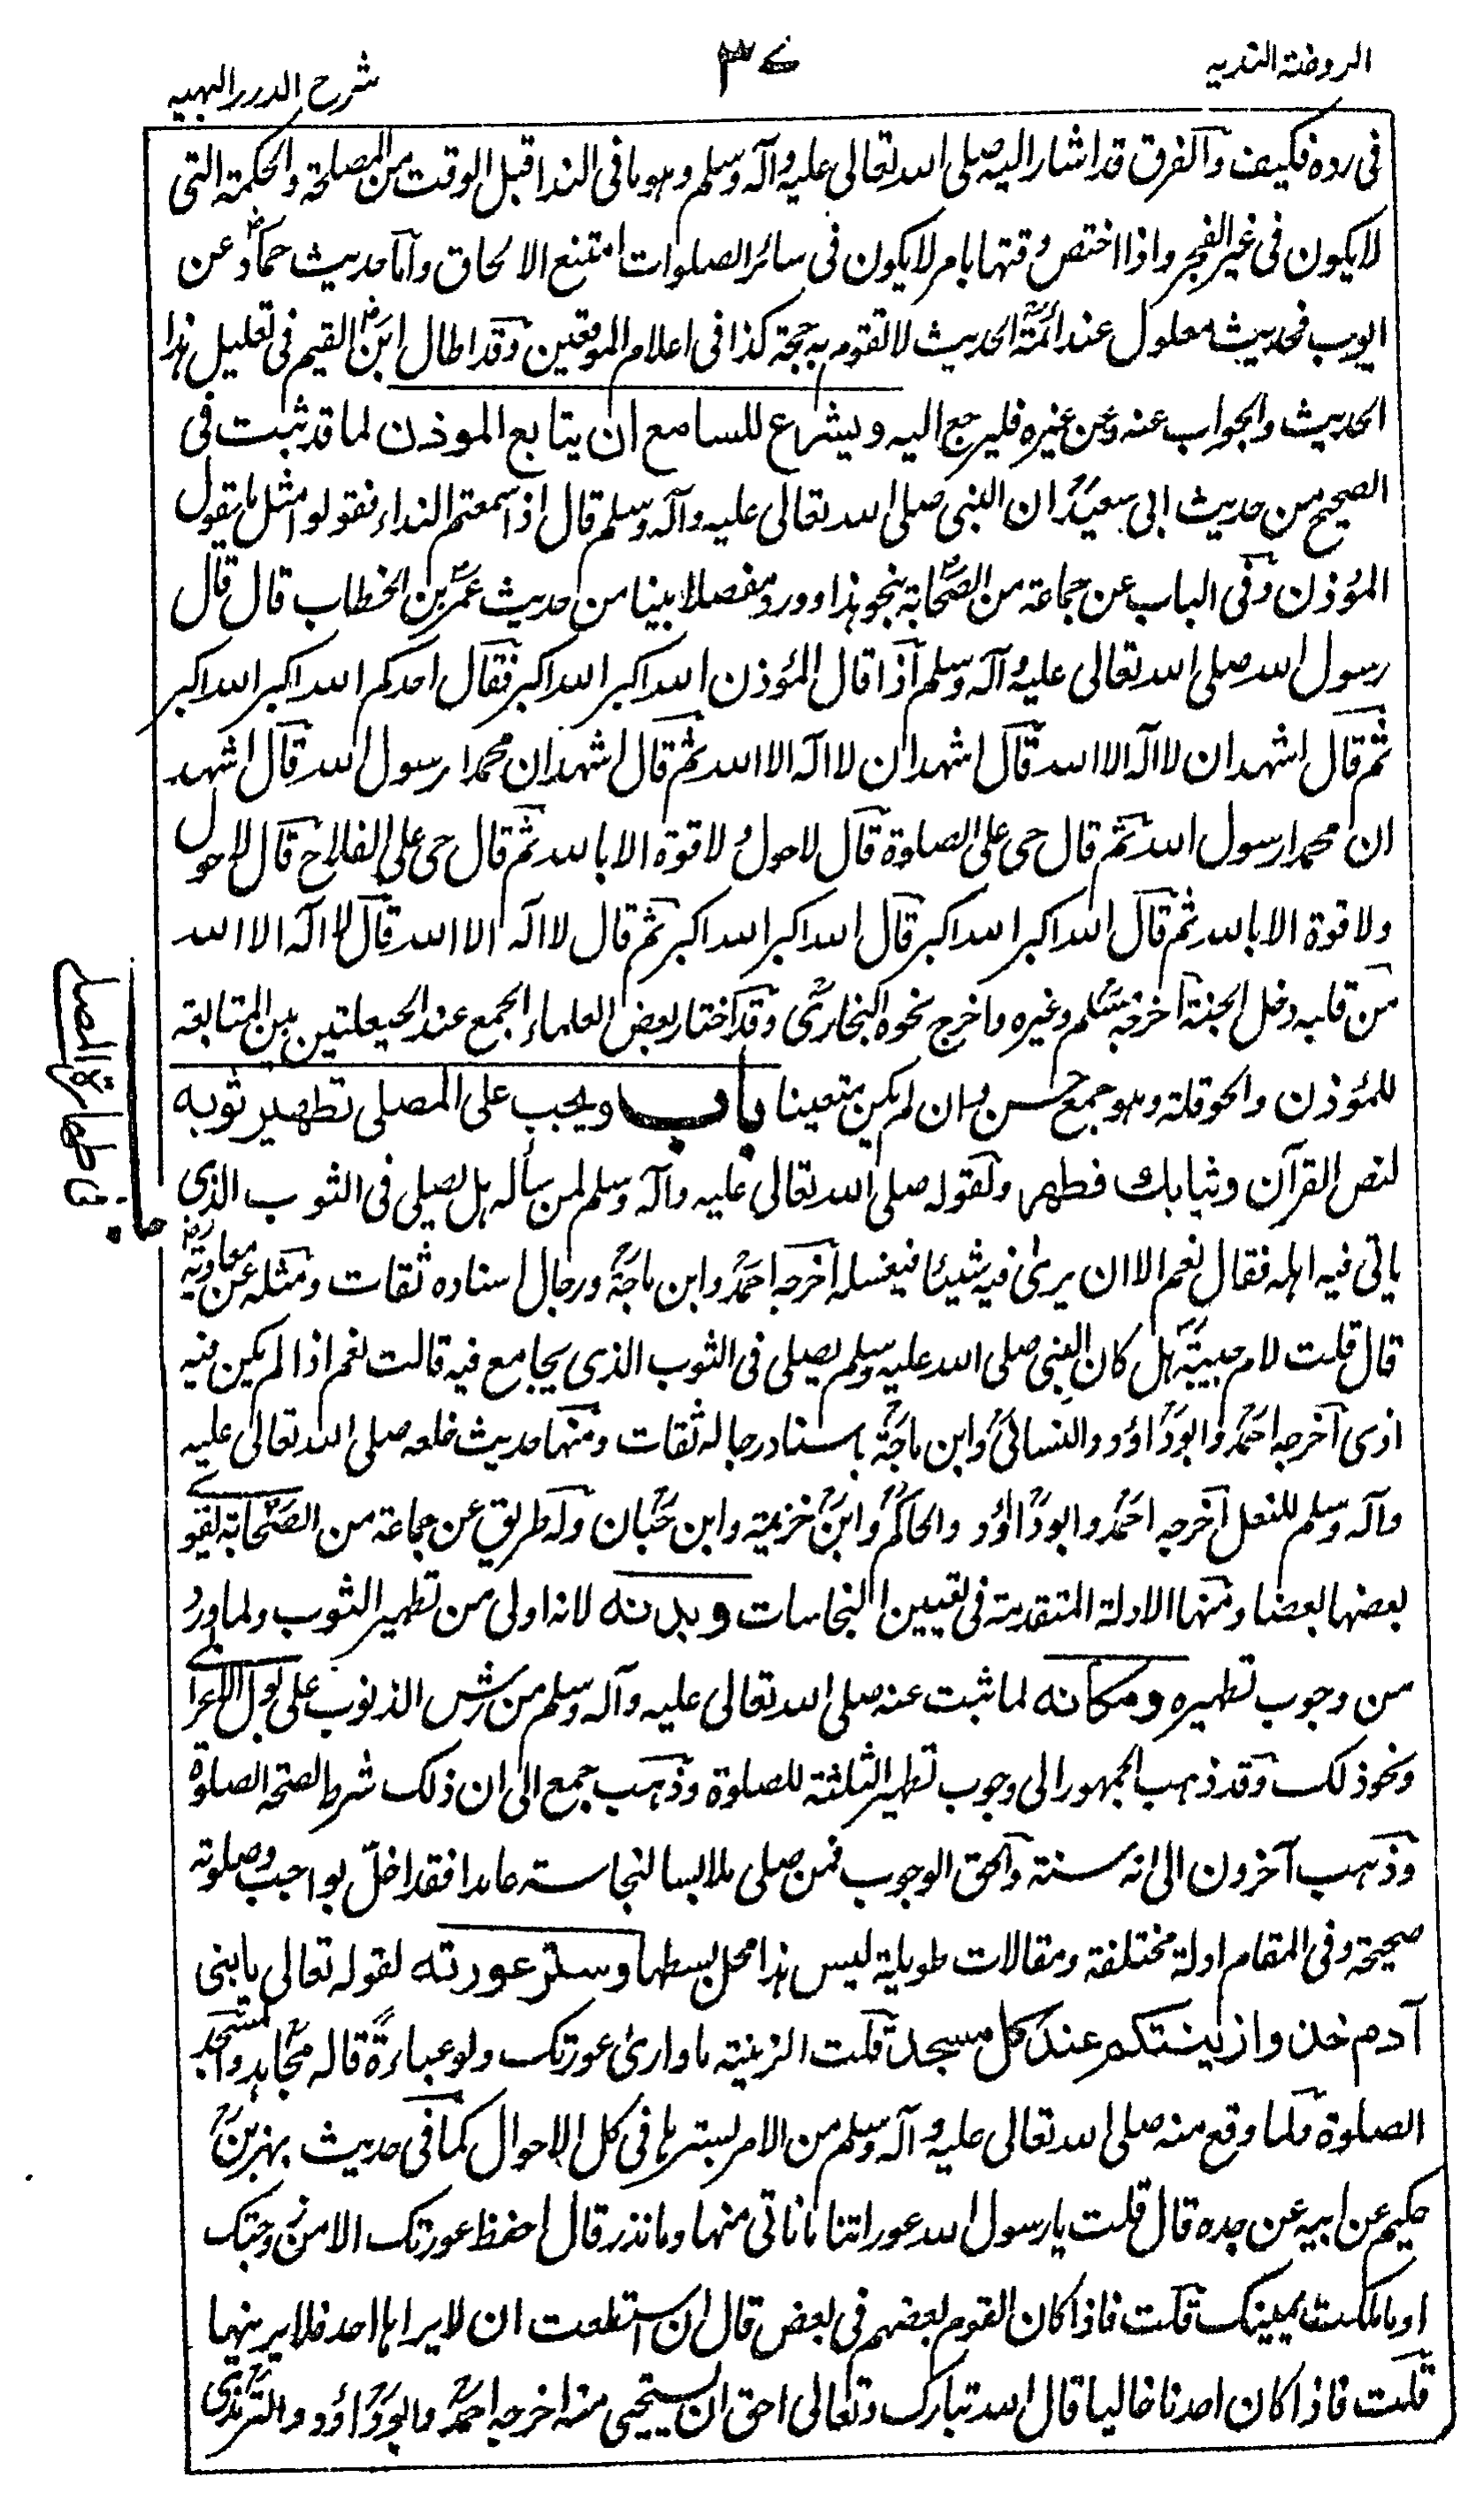 الروضة الندية
٣٧
شرح الدرر البهية
فى رده فكيف والفرق قد اشار اليه صلى الله تعالى عليه وآله وسلم وهو ما فى الندا قبل الوقت من المصلحة والحكمة التى
لا يكون فى غير الفجر واذا اختص وقتها بامر لا يكون فى سائر الصلوات امتنع الالحاق واما حديث حماد عن
ايوب فحديث معلول عند ائمة الحديث لا تقوم به حجة كذا فى اعلام الموقعين وقد اطال ابن القيم فى تعليل هذا
الحديث والجواب عنه وعن غيره فليرجع اليه ويشرع للسامع ان يتابع الموذن لما قد ثبت فى
الصحيح من حديث ابى سعيد ان النبى صلى الله تعالى عليه وآله وسلم قال اذا سمعتم النداء فقولوا مثل ما يقول
المؤذن وفى الباب عن جماعة من الصحابة بنحو هذا وورد مفصلا مبينا من حديث عمر بن الخطاب قال قال
رسول الله صلى الله تعالى عليه وآله وسلم اذا قال المؤذن الله اكبر الله اكبر فقال احدكم الله اكبر الله اكبر
ثم قال اشهد ان لا اله الا الله قال اشهد ان لا اله الا الله ثم قال اشهد ان محمدا رسول الله قال اشهد
ان محمدا رسول الله ثم قال حى على الصلوة قال لا حول و لا قوة الا بالله ثم قال حى على الفلاح قال لا حول
ولا قوة الا بالله ثم قال الله اكبر الله اكبر قال الله اكبر الله اكبر ثم قال لا اله الا الله قال لا اله الا الله
من قلبه دخل الجنة اخرجه مسلم وغيره واخرج نحوه البخارى وقد اختار بعض العلماء الجمع عند الحيعلتين بين المتابعة
للمؤذن والحوقلة وهو جمع حسن وان لم يكن متعينا باب ويجب على المصلى تطهير ثوبه
لنص القرآن وثيابك فطهر ولقوله صلى الله تعالى عليه وآله وسلم لمن سأله هل يصلى فى الثوب الذى
ياتى فيه اهله فقال نعم الا ان يرى فيه شيئا فيغسله اخرجه احمد وابن ماجة ورجال اسناده ثقات ومثله عن معاوية
قال قلت لام حبيبة هل كان النبى صلى الله عليه وسلم يصلى فى الثوب الذى يجامع فيه قالت نعم اذا لم يكن فيه
اذى اخرجه احمد وابو داؤد والنسائى وابن ماجة باسناد رجاله ثقات ومنها حديث خلعه صلى الله تعالى عليه
وآله وسلم للنعل اخرجه احمد وابو داؤد والحاكم وابن خزيمة وابن حبان وله طريق عن جماعة من الصحابة يقوى
بعضها بعضا ومنها الادلة المتقدمة فى تعيين النجاسات وبدنه لانه اولى من تطهير الثوب ولما ورد
من وجوب تطهيره ومكانه لما ثبت عنه صلى الله تعالى عليه وآله وسلم من رش الذنوب على بول الاعرابى
ونحو ذلك وقد ذهب الجمهور الى وجوب تطهير الثلثة للصلوة وذهب جمع الى ان ذلك شرط لصحة الصلوة
وذهب آخرون الى انه سنة والحق الوجوب فمن صلى ملابسا لنجاسة عامدا فقد اخلّ بواجب وصلوته
صحيحة وفى المقام ادلة مختلفة ومقالات طويلة ليس هذا محل بسطها وستر عورته لقوله تعالى يا بنى
آدم خذوا زينتكم عند كل مسجد قلت الزينة ما وارى عورتك ولو عباءة قاله مجاهد والمسجد
الصلوة ولما وقع منه صلى الله تعالى عليه وآله وسلم من الامر بسترها فى كل الاحوال كما فى حديث بهز بن
حكيم عن ابيه عن جده قال قلت يا رسول الله عوراتنا ما ناتى منها وما نذر قال احفظ عورتك الا من زوجتك
او ما ملكت يمينك قلت فاذا كان القوم بعضهم فى بعض قال ان استطعت ان لا يراها احد فلا يرينها
قلت فاذا كان احدنا خاليا قال الله تبارك وتعالى احق ان يستحيى منه اخرجه احمد وابو داؤد والترمذى